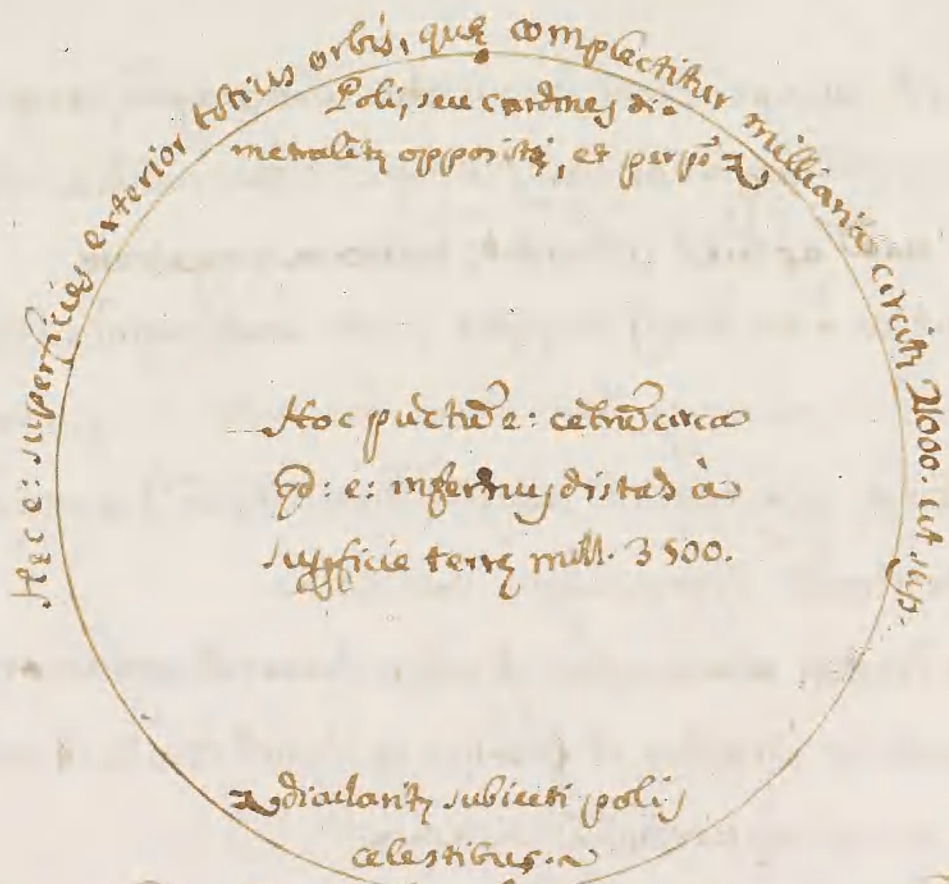 Hęc e: superficies exterior totius orbis, quę complectitur milliaria circitr 21000. ut sup.
Poli, seu cardines dia
metralitr oppositi, et perpē
Hoc pūctū e: cētrū circa
qd: e: infernus distās à
suꝑficie terrę mill. 3500.
diculariter subiecti polis
celestibus.